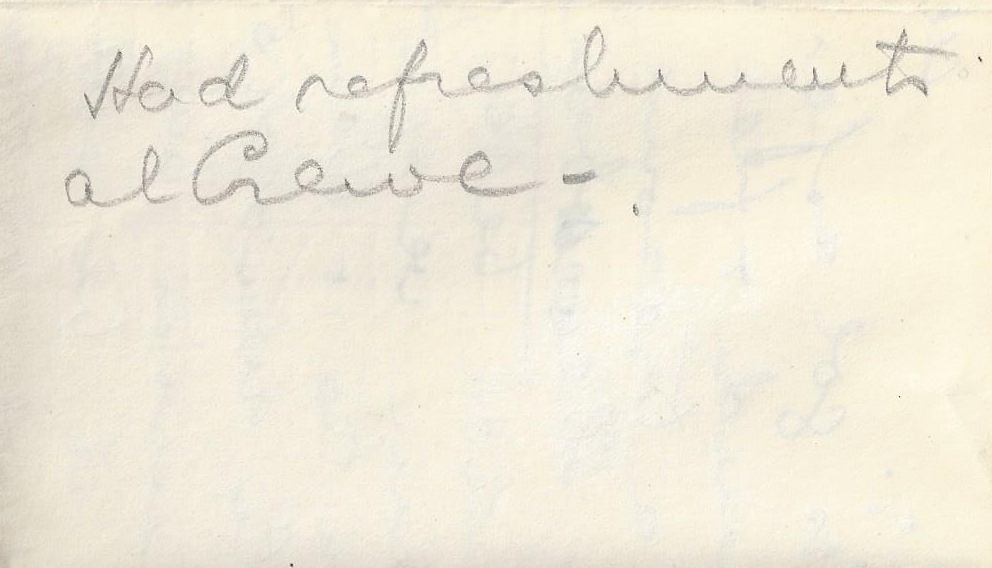 Had refreshments
at Crewe -